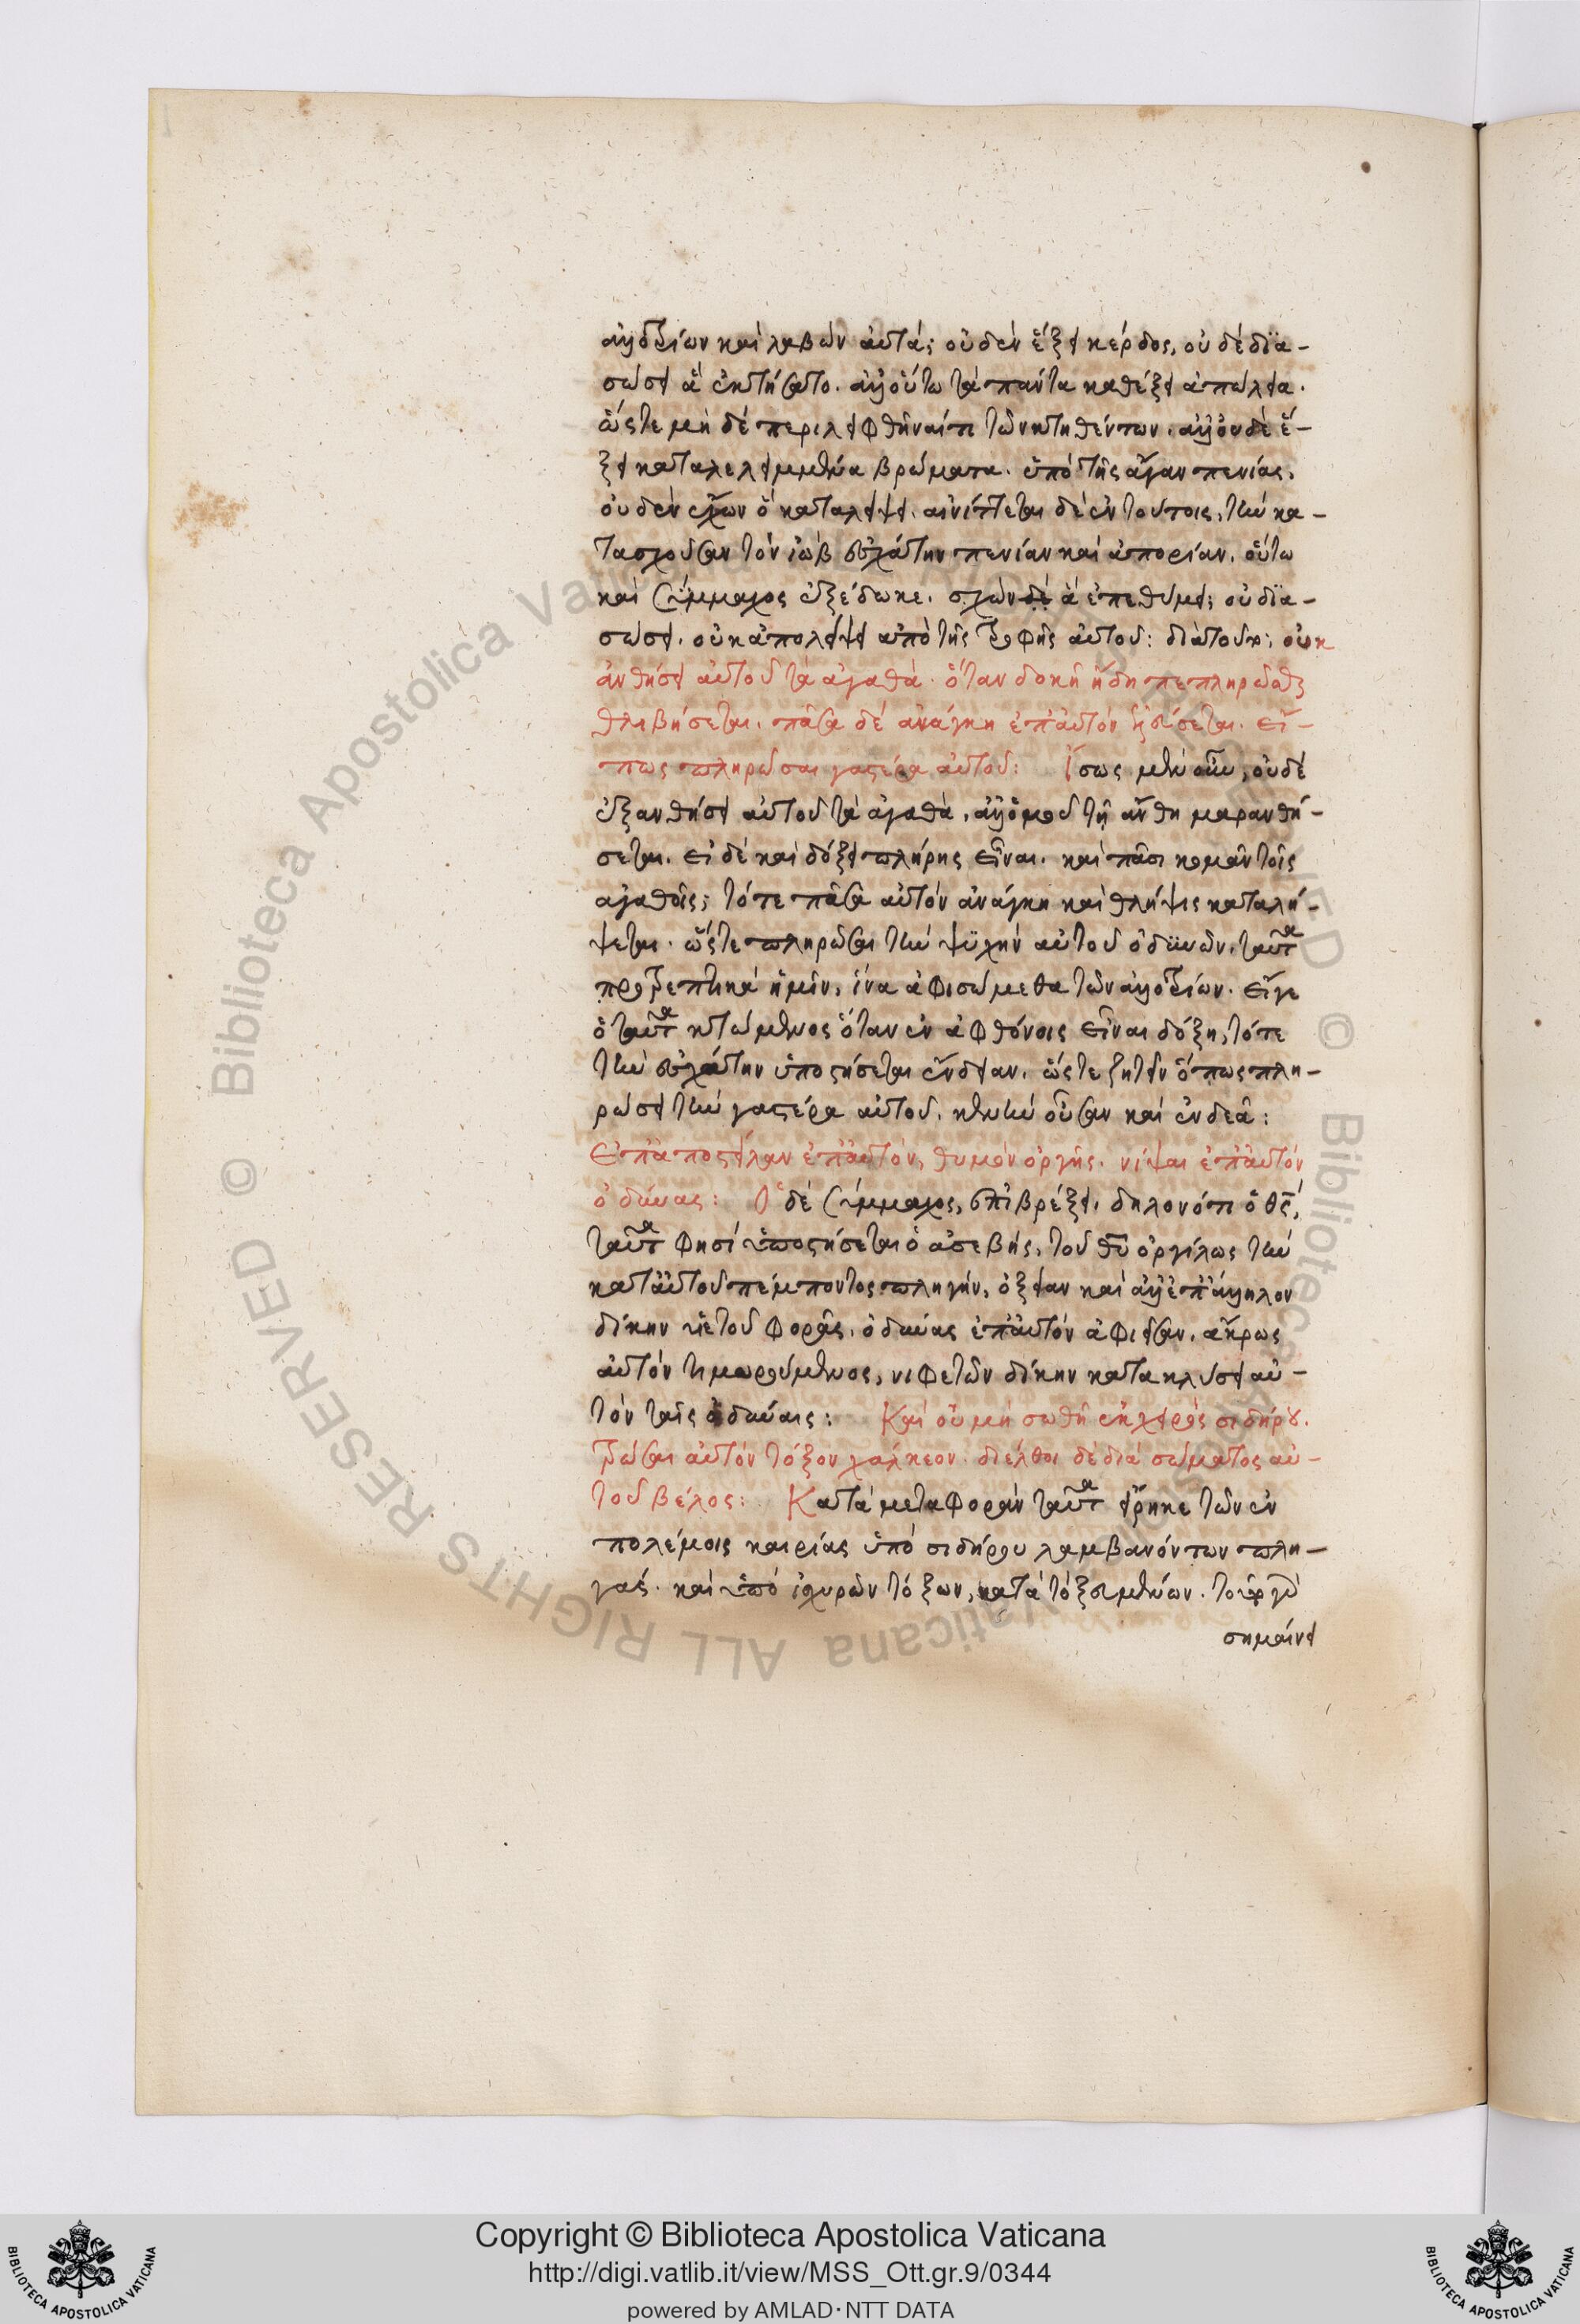 ἀλλοτρίων καὶ λαβὼν αὐτά; οὐδὲν ἕξει κέρδος, οὐδὲ δϊα-
σώσει ἃ ἐκτήσατο. ἀλλ' οὕτω τὰ πάντα καθέξει ἀπώλεια.
ὥστε μὴ δὲ περιλειφθῆναί τι τῶν κτηθέντων. ἀλλ' οὐδὲ ἕ-
ξει καταλελειμμένα βρώματα. ὑπὸ τῆς ἄγαν πενίας,
οὐδὲν ἔχων ὃ καταλείψει. αἰνίττεται δὲ ἐν τούτοις, τὴν κα-
τασχοῦσαν τὸν ἰὼβ ἐσχάτην πενίαν καὶ ἀπορίαν. οὕτω
καὶ Σύμμαχος ἐξέδωκε. σχὼν δὲ ἃ ἐπεθύμει; οὐ δϊα-
σώσει. οὐκ ἀπολείψει ἀπὸ τῆς τροφῆς αὐτοῦ: διὰ τοῦτο; οὐκ
ἀνθήσει αὐτοῦ τὰ ἀγαθά. ὅταν δοκῇ ἤδη πεπληρῶσθαι
θλιβήσεται. πᾶσα δὲ ἀνάγκη ἐπ' αὐτὸν ἥξει. εἴ-
πως πληρῶσαι γαστέρα αὐτοῦ: Ἴσως μὲν οὖν, οὐδὲ
ἐξανθήσει αὐτοῦ τὰ ἀγαθά, ἀλλ' ὁμοῦ τῇ ἄνθῃ μαρανθή-
σεται. εἰ δὲ καὶ δόξει πλήρης εἶναι. καὶ πᾶσι κομᾶν τοῖς
ἀγαθοῖς; τότε πᾶσα αὐτὸν ἀνάγκη καὶ θλῆψις καταλή-
ψεται. ὥστε πληρῶσαι τὴν ψϋχὴν αὐτοῦ ὀδϋνῶν. ταῦτα
προτρεπτικὰ ἡμῖν, ἵνα ἀφιστώμεθα τῶν ἀλλοτρίων. εἴγε
ὁ ταῦτα κτώμενος ὅταν ἐν ἀφθόνοις εἶναι δόξῃ, τότε
τὴν ἐσχάτην ὑποστήσεται ἔνδειαν. ὥστε ζητεῖν ὅπως πλη-
ρώσει τὴν γαστέρα αὐτοῦ. κενὴν οὖσαν καὶ ἐνδεᾶ:
Ἐπαποστεῖλαι ἐπ' αὐτὸν, θυμὸν ὀργῆς. νίψαι ἐπ' αὐτὸν
ὀδύνας: Ὁ δὲ Σύμμαχος, ἐπιβρέξει, δηλονότι ὁ θς,
ταῦτα φησὶ ὑποστήσεται ὁ ἀσεβής, τοῦ θυ ὀργίλως τὴν
κατ' αὐτοῦ πέμποντος πληγήν, ὀξεῖαν καὶ ἀλλεπάλληλον
δίκην ὑετοῦ φορᾶς, ὀδύνας ἐπ' αὐτὸν ἀφιεῖσαν. ἄκρως
αὐτὸν τιμωρούμενος, νιφετῶν δίκην κατακλύσει αὐ-
τὸν ταῖς ὀδύναις: Καὶ οὐ μὴ σωθῇ ἐκ χειρὸς σιδήρου.
τρώσαι αὐτὸν τόξον χάλκεον. διέλθοι δὲ διὰ σώματος αὐ-
τοῦ βέλος: Κατὰ μεταφορὰν ταῦτα εἴρηκε τῶν ἐν
πολέμοις καιρίας ὑπὸ σιδήρου λαμβανόντων πλη-
γάς. καὶ ὑπὸ ἰσχυρῶν τόξων, κατατοξευομένων.
σημαίνει
Copyright © Biblioteca Apostolica Vaticana
http://digi.vatlib.it/view/MSS_Ott.gr.9/0344
powered by AMLAD·NTT DATA